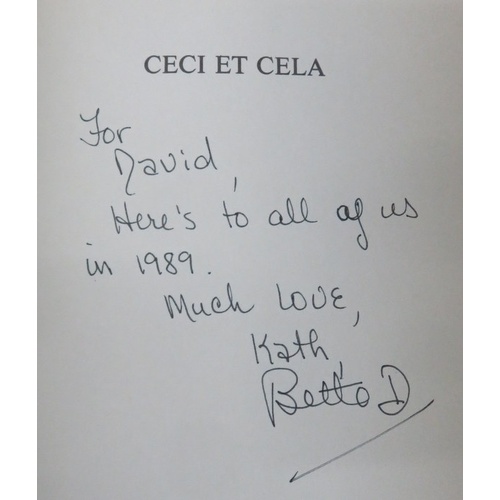 CECI ET CELA
For
David,
Here's to all of us
in 1989.
Much Love,
Kath,
Betto D